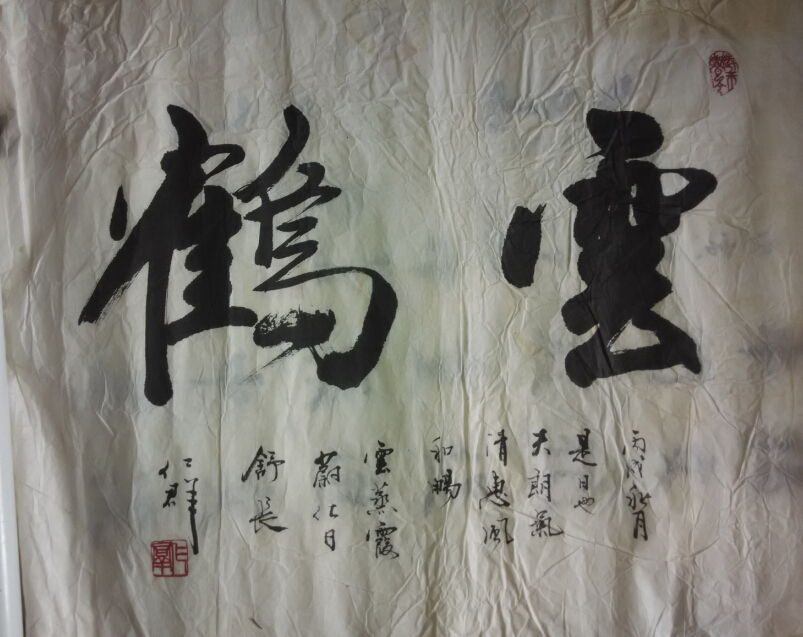 雲鶴
丙戌秋月
是日也
天朗氣
清惠風
和暢
雲蒸霞
蔚化日
舒長